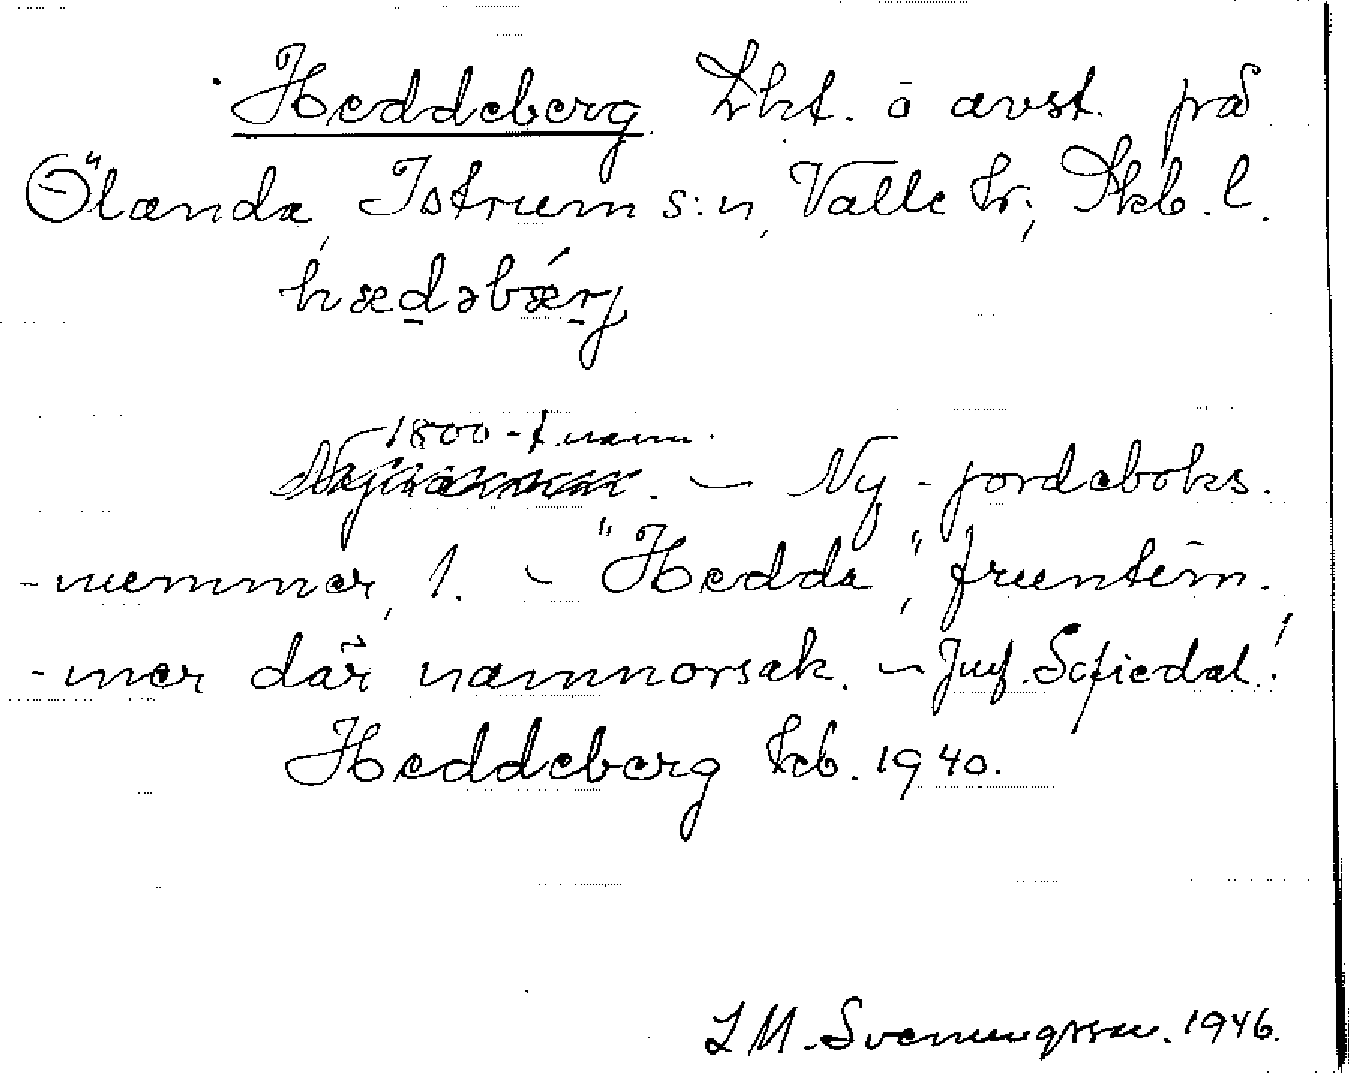 Heddeberg Lht. o avst. på
Ölanda, Istrum s:n, Valle hr., Skb. l.
hædəbærj
1800-t. namn.
– Ny-jordeboks-
-nummer, 1. – "Hedda", fruntim-
-mer där namnorsak. – Jmf. Sofiedal!
Heddeberg kb. 1940.
L M. Svenungsson. 1946.